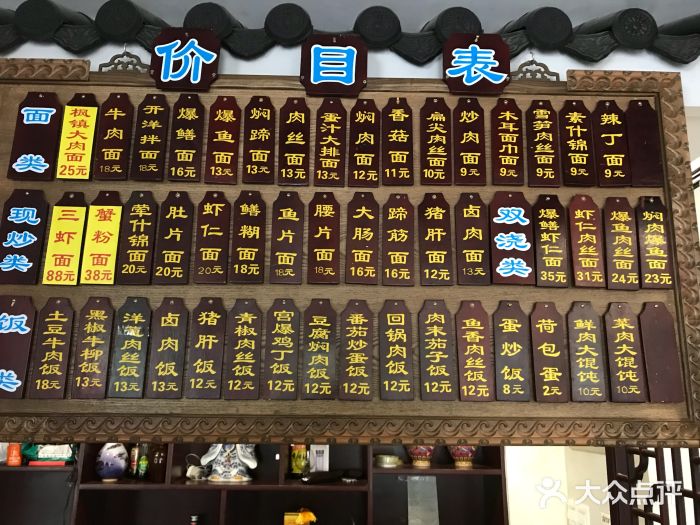 价目表
面类
枫镇大肉面 25元
牛肉面 18元
开洋拌面 18元
爆鳝面 16元
爆鱼面 13元
焖蹄面 13元
肉丝面 13元
蛋汁大排面 13元
焖肉面 12元
香菇面 11元
扁尖肉丝面 10元
炒肉面 9元
木耳面巾面 9元
雪笋肉丝面 9元
素什锦面 9元
辣丁面 9元
现炒类
三虾面 88元
蟹粉面 38元
荤什锦面 20元
肚片面 20元
虾仁面 20元
鳝糊面 18元
鱼片面 18元
腰片面 18元
大肠面 16元
蹄筋面 16元
猪肝面 12元
卤肉面 13元
双浇类
爆鳝虾仁面 35元
虾仁肉丝面 31元
爆鱼肉丝面 24元
焖肉爆鱼面 23元
饭类
土豆牛肉饭 18元
黑椒牛柳饭 13元
洋葱肉丝饭 13元
卤肉饭 13元
猪肝饭 12元
青椒肉丝饭 12元
宫爆鸡丁饭 12元
豆腐焖肉饭 12元
番茄炒蛋饭 12元
回锅肉饭 12元
肉末茄子饭 12元
鱼香肉丝饭 12元
蛋炒饭 8元
荷包蛋 2元
鲜肉大馄饨 10元
菜肉大馄饨 10元
大众点评